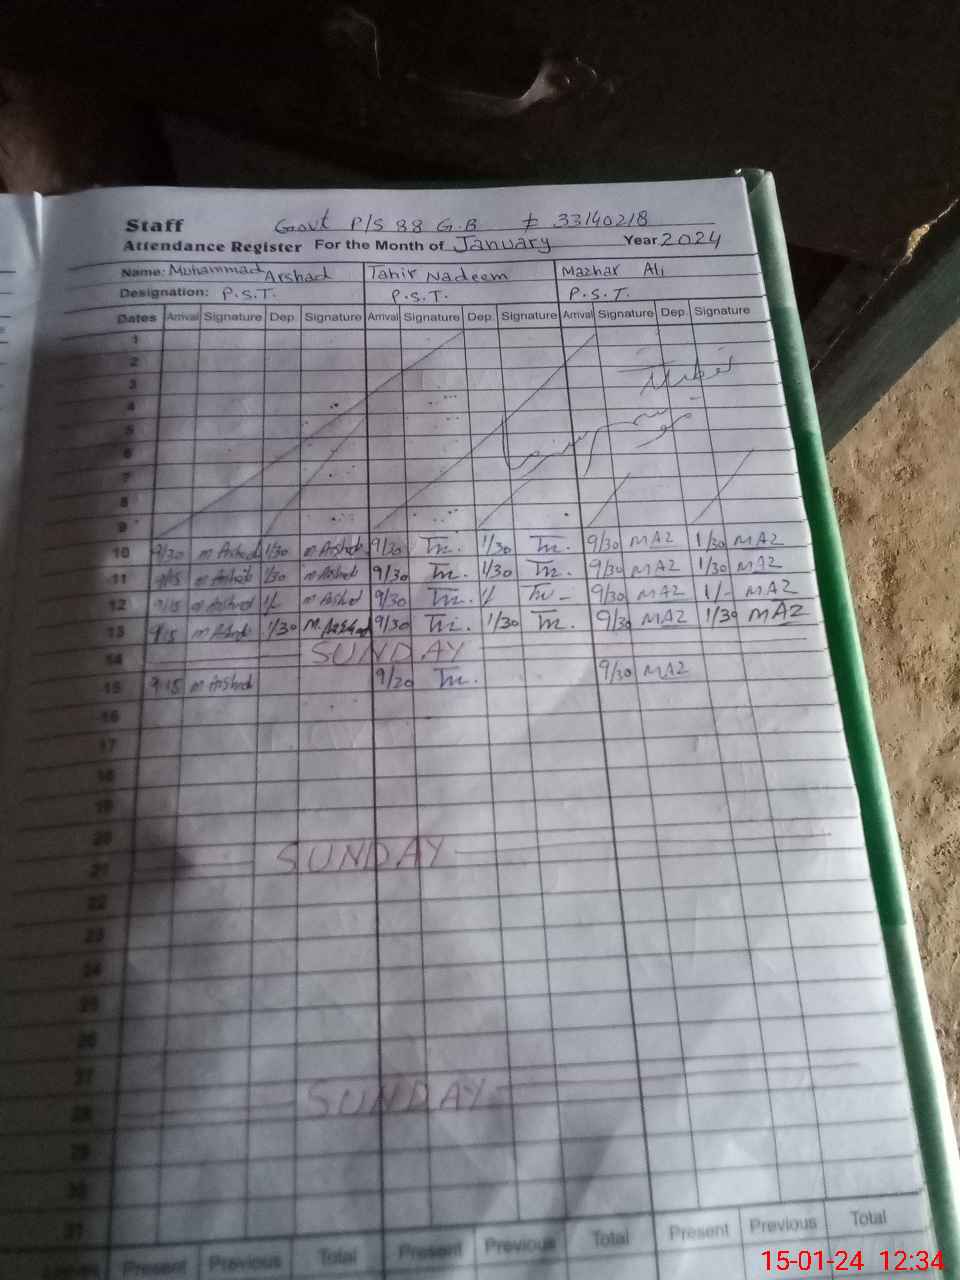 Staff Govt P/S 88 G.B # 33140218
Attendance Register For the Month of January Year 2024
Name: Muhammad Arshad Tahir Nadeem Mazhar Ali
Designation: P.S.T. P.S.T. P.S.T.
Dates Arrival Signature Dep. Signature Arrival Signature Dep. Signature Arrival Signature Dep. Signature
1
2
3
4
5
6
7
8
9
10 9/30 m Arshad 1/30 m Arshad 9/30 Tn. 1/30 Tn. 9/30 MAZ 1/30 MAZ
11 9/15 m Arshad 1/30 m Arshad 9/30 Tn. 1/30 Tn. 9/30 MAZ 1/30 MAZ
12 9/15 m Arshad 1/- m Arshad 9/30 Tn. 1/ Tn - 9/30 MAZ 1/- MAZ
13 9/15 m Arshad 1/30 M. Arshad 9/30 Tn. 1/30 Tn. 9/30 MAZ 1/30 MAZ
14 SUNDAY
15 9/15 m Arshad 9/20 Tn. 9/30 MAZ
16
17
18
19
20
21 SUNDAY
22
23
24
25
26
27
28 SUNDAY
29
30
31
Present Previous Total Present Previous Total Present Previous Total
15-01-24 12:34